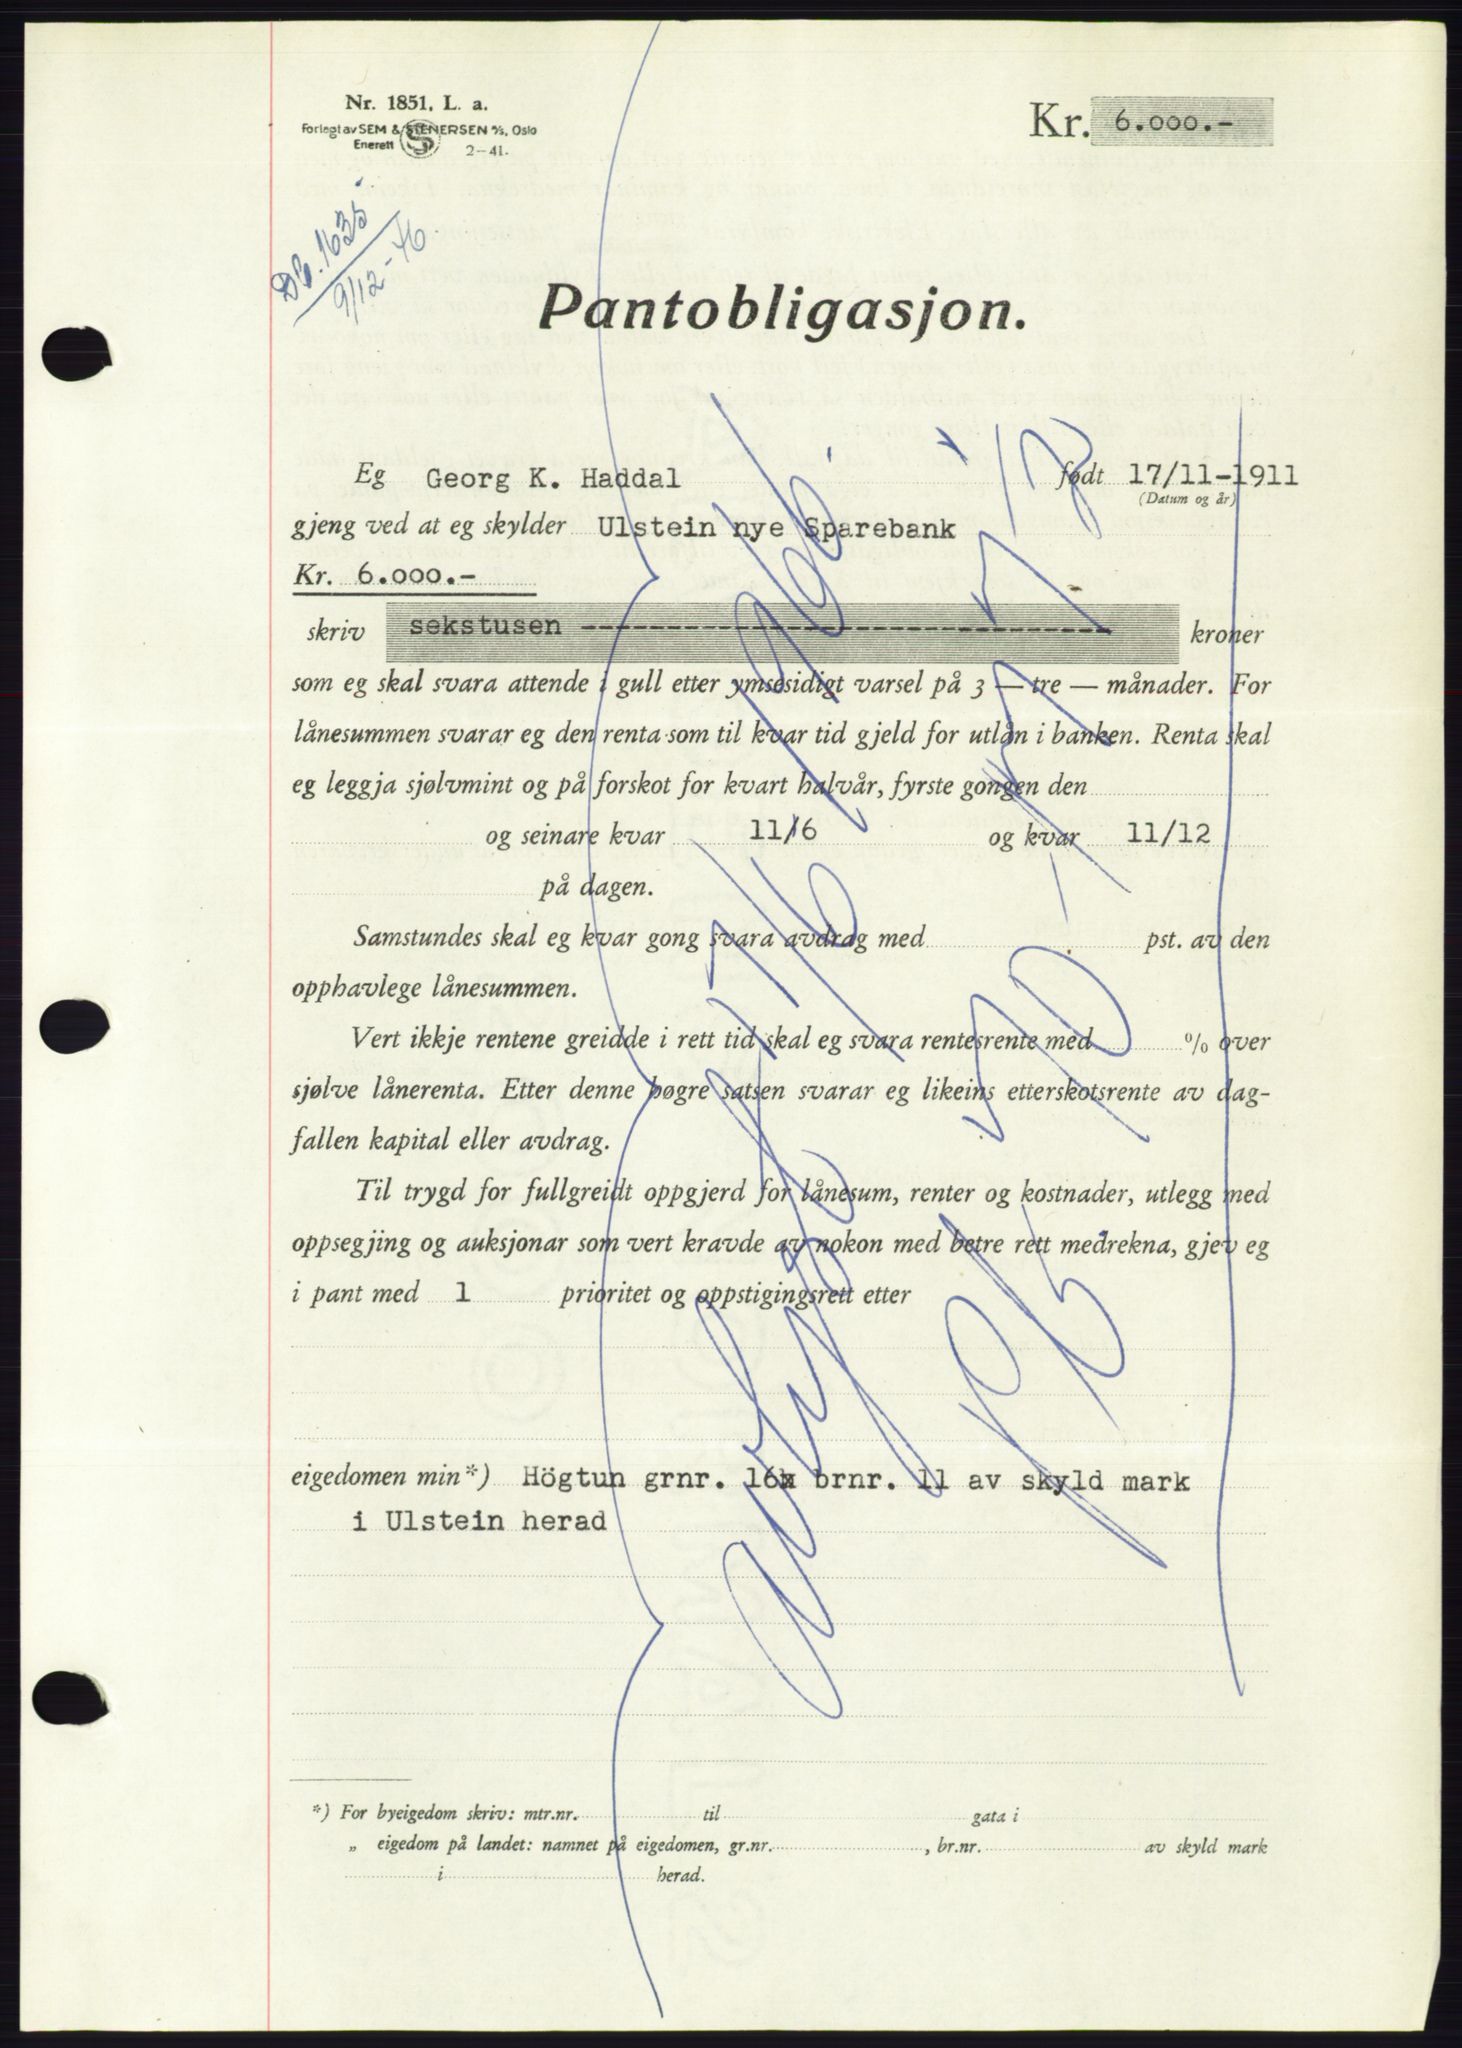 Nr. 1851, L. a.
Forlegt av SEM & STENERSEN A/S, Oslo
Enerett
2-41.
Kr. 6.000.-
Db. 1635
9/12-46
Pantobligasjon.
Eg Georg K. Haddal født 17/11-1911
(Datum og år)
gjeng ved at eg skylder Ulstein nye Sparebank
Kr. 6.000.-
skriv sekstusen ------------------------------------ kroner
som eg skal svara attende i gull etter ymsesidigt varsel på 3 — tre — månader. For
lånesummen svarar eg den renta som til kvar tid gjeld for utlån i banken. Renta skal
eg leggja sjølvmint og på forskot for kvart halvår, fyrste gongen den
og seinare kvar 11/6 og kvar 11/12
på dagen.
Samstundes skal eg kvar gong svara avdrag med pst. av den
opphavlege lånesummen.
Vert ikkje rentene greidde i rett tid skal eg svara rentesrente med % over
sjølve lånerenta. Etter denne høgre satsen svarar eg likeins etterskotsrente av dag-
fallen kapital eller avdrag.
Til trygd for fullgreidt oppgjerd for lånesum, renter og kostnader, utlegg med
oppsegjing og auksjonar som vert kravde av nokon med betre rett medrekna, gjev eg
i pant med 1 prioritet og oppstigingsrett etter
eigedomen min*) Högtun grnr. 16 brnr. 11 av skyld mark
i Ulstein herad
*) For byeigedom skriv: mtr.nr. til gata i
„ eigedom på landet: namnet på eigedomen, gr.nr. , br.nr. av skyld mark
i herad.